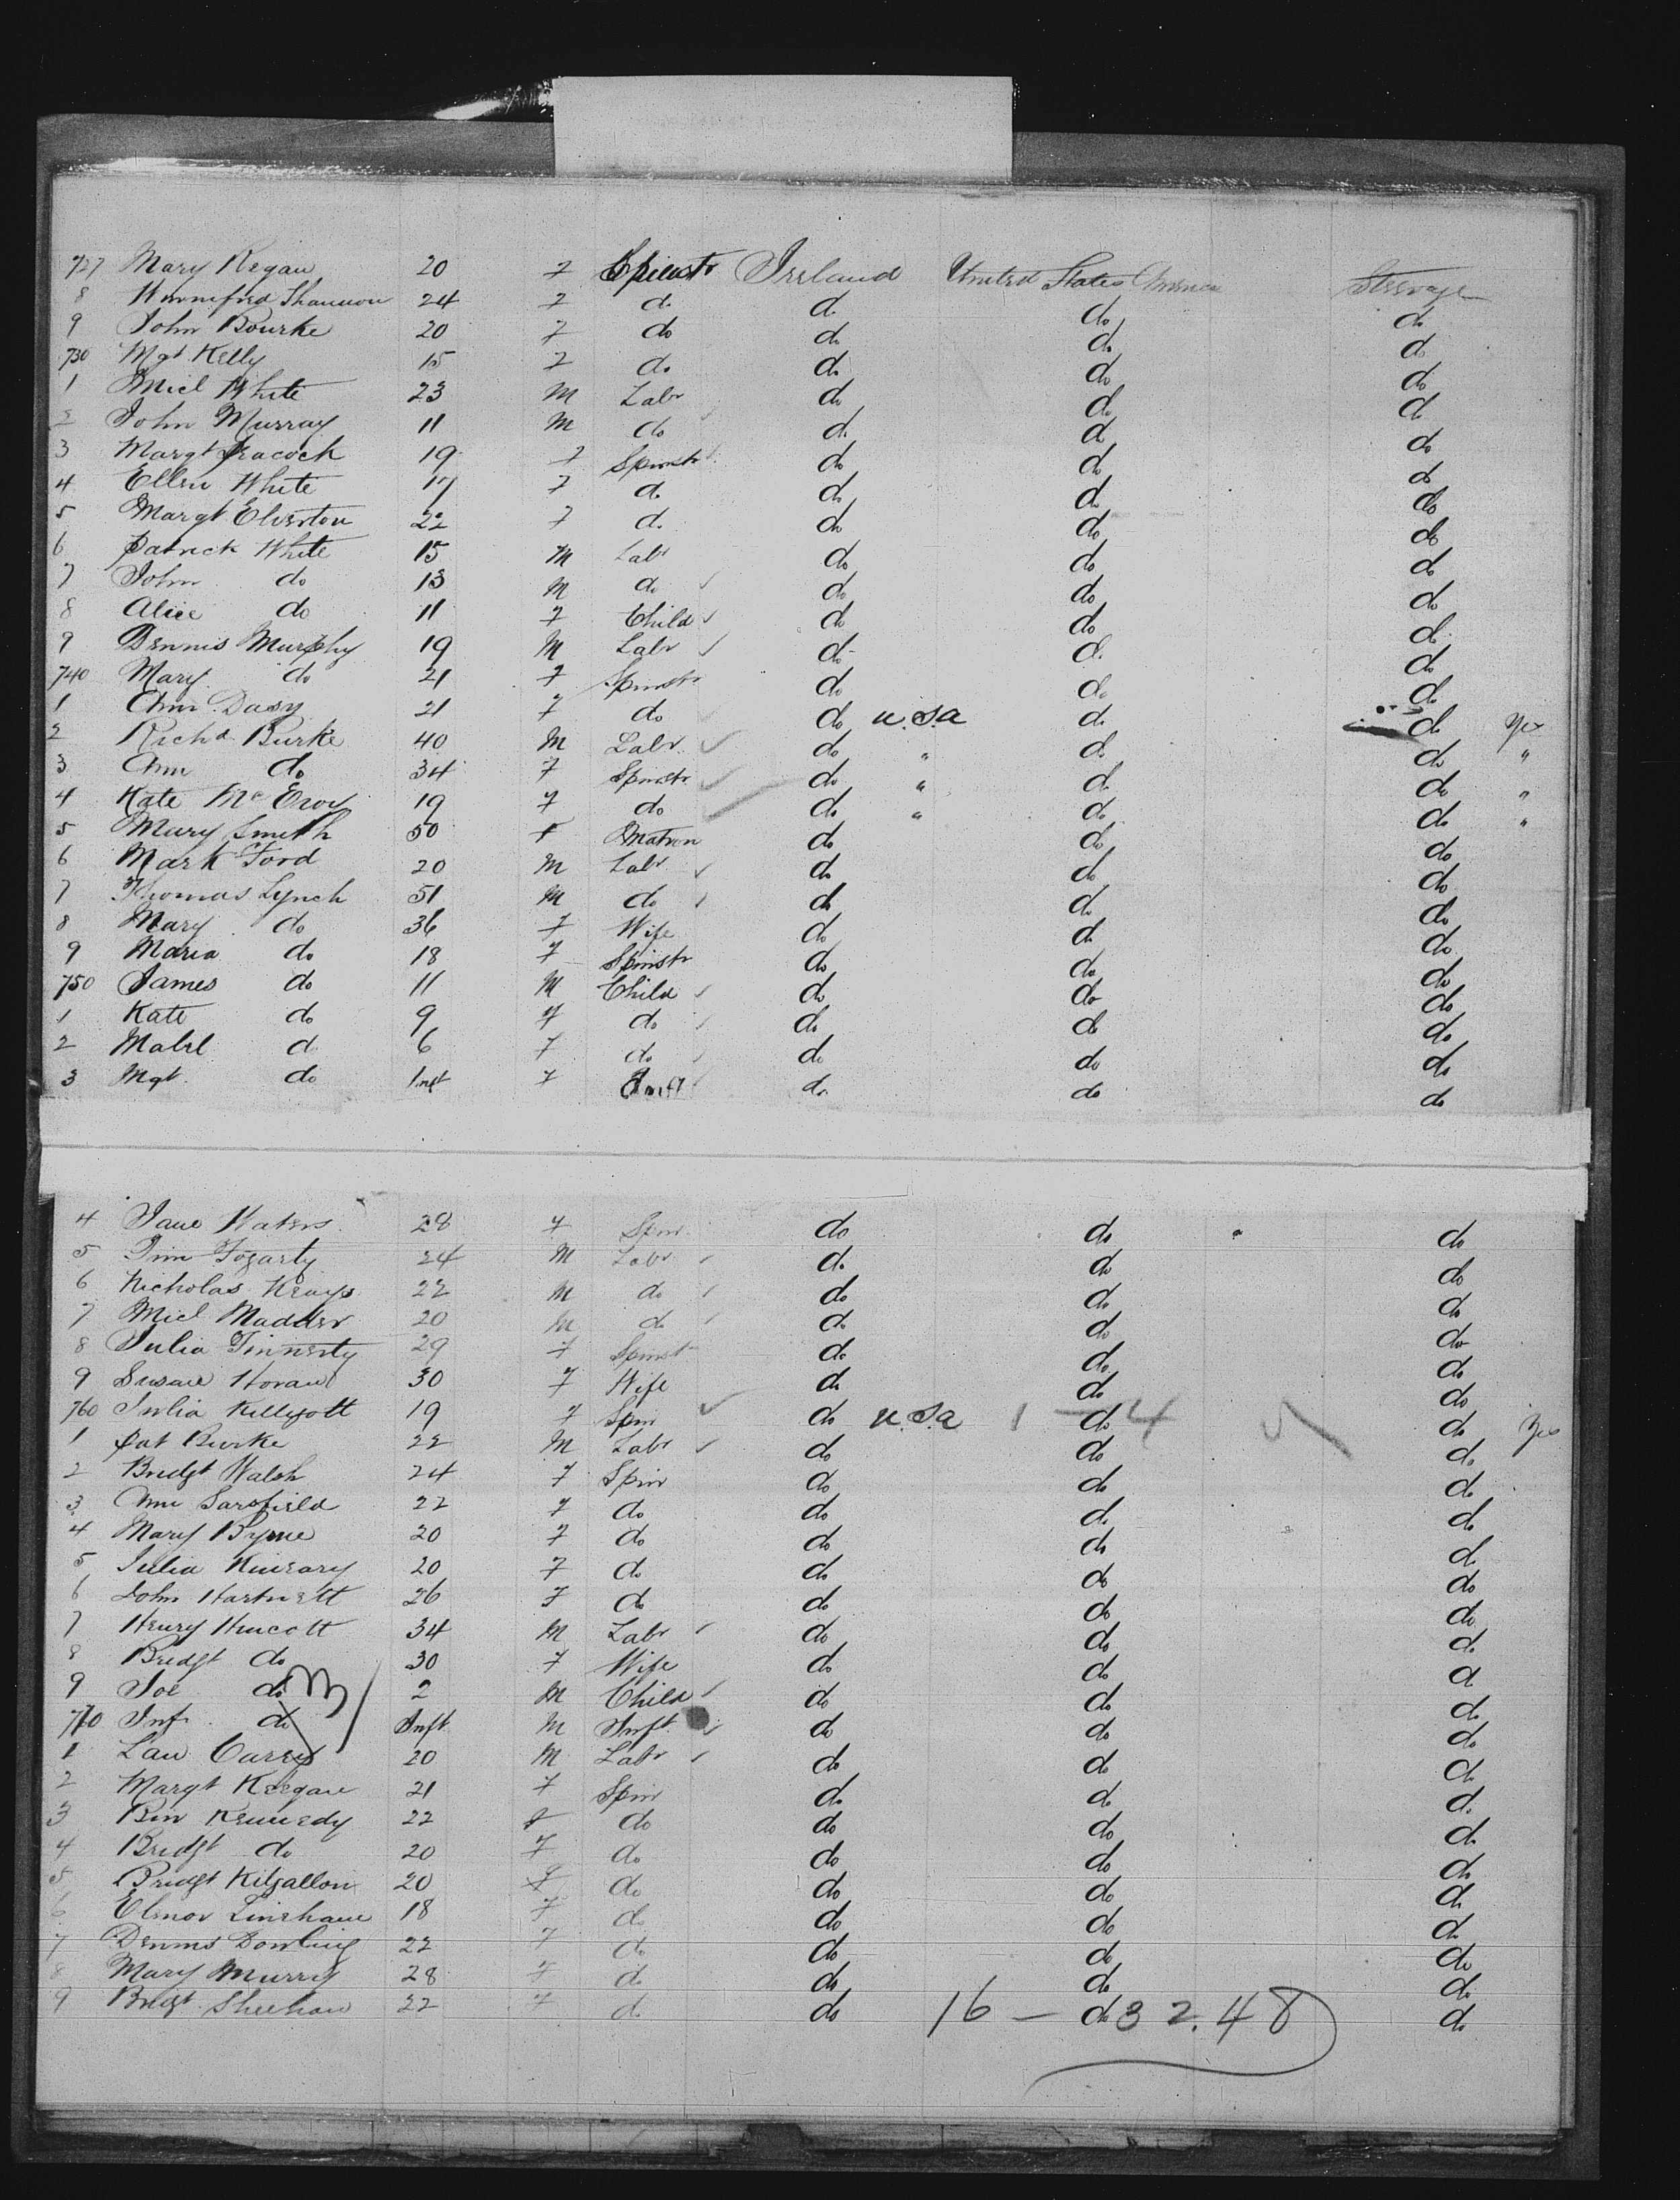 727 Mary Regan 20 F Spinstr Ireland United States America Steerage
8 Winnifred Shannon 24 F do do do do
9 John Bourke 20 F do do do do
730 Mgt Kelly 15 F do do do do
1 Micl White 23 M Labr do do do
2 John Murray 11 M do do do do
3 Margt Peacock 19 F Spinstr do do do
4 Ellen White 17 F do do do do
5 Margt Elverton 22 F do do do do
6 Patrick White 15 M Labr do do do
7 John do 13 M do do do do
8 Alice do 11 F Child do do do
9 Dennis Murphy 19 M Labr do do do
740 Mary do 21 F Spinstr do do do
1 Ann Dasy 21 F do do U.S.A do do Yes
2 Richd Burke 40 M Labr do " do do "
3 Ann do 34 F Spinstr do " do do "
4 Kate McEvoy 19 F do do " do do "
5 Mary Smith 50 F Matron do do do
6 Mark Ford 20 M Labr do do do
7 Thomas Lynch 51 M do do do do
8 Mary do 36 F Wife do do do
9 Maria do 18 F Spinstr do do do
750 James do 11 M Child do do do
1 Kate do 9 F do do do do
2 Mabel do 6 F do do do do
3 Mgt do Inft F Inft do do do
4 Jane Waters 28 F Spin do do do
5 Tim Fogarty 24 M Labr do do do
6 Nicholas 22 M do do do do
7 Micl Madden 20 M do do do do
8 Julia Finnerty 29 F Spinst do do do
9 Susan Horan 30 F Wife do do do
760 Julia 19 F Spin do U.S.A 1 – do 4 do Yes
1 Pat Burke 22 M Labr do do do
2 Bridgt Walsh 24 F Spin do do do
3 Ann Sarsfield 22 F do do do do
4 Mary Byrne 20 F do do do do
5 Julia Kinsary 20 F do do do do
6 John Hartnett 26 F do do do do
7 Henry Hucott 34 M Labr do do do
8 Bridgt do 30 F Wife do do do
9 Joe do 2 M Child do do do
770 Inf do Inft M Inft do do do
1 Law Carey 20 M Labr do do do
2 Margt Keegan 21 F Spin do do do
3 Bin Kennedy 22 F do do do do
4 Bridgt do 20 F do do do do
5 Bridgt Kilgallon 20 F do do do do
6 Elenor Linehane 18 F do do do do
7 Dennis Dowling 22 F do do do do
8 Mary Murry 28 F do do do do
9 Bridgt Sheehan 22 F do do do do
16 – 32.48